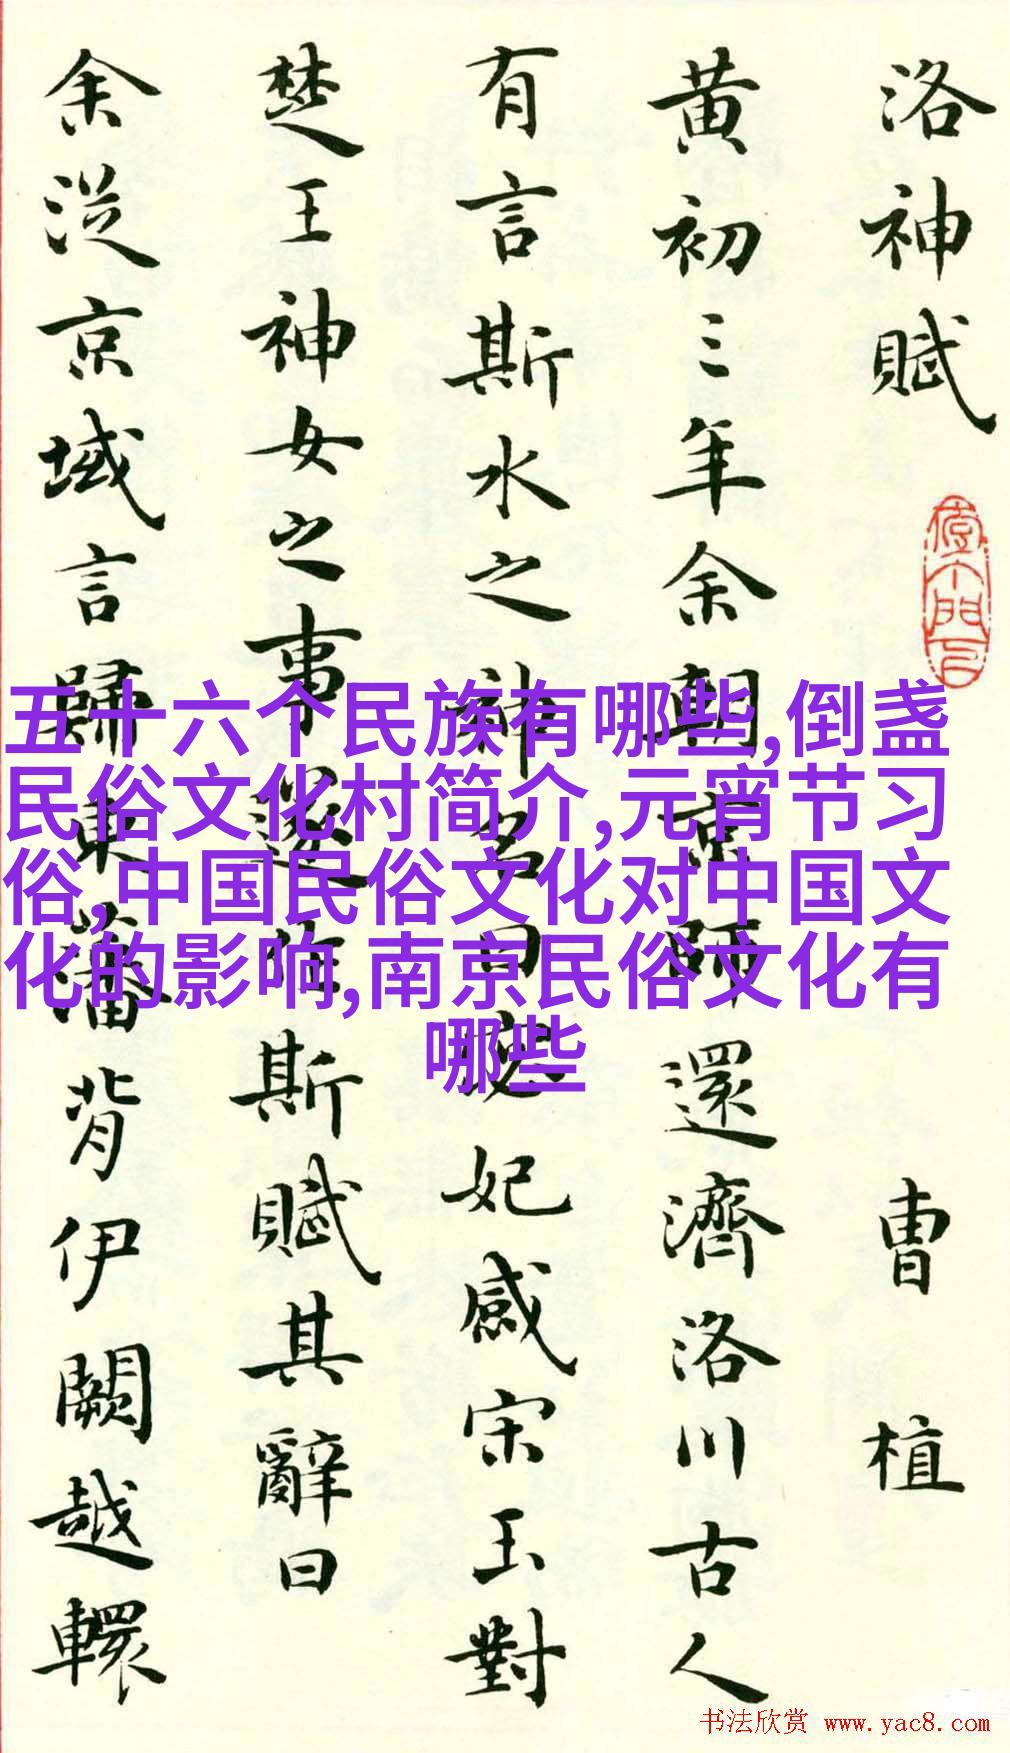 洛神賦
曹植
黄初三年余朝京師還濟洛川古人
有言斯水之神名曰宓妃感宋玉對
楚王神女之事遂作斯賦其辭曰
余從京域言歸東藩背伊闕越轘
五十六个民族有哪些,倒盏
民俗文化村简介,元宵节习
俗,中国民俗文化对中国文
化的影响,南京民俗文化有
哪些
书法欣赏 www.yac8.com